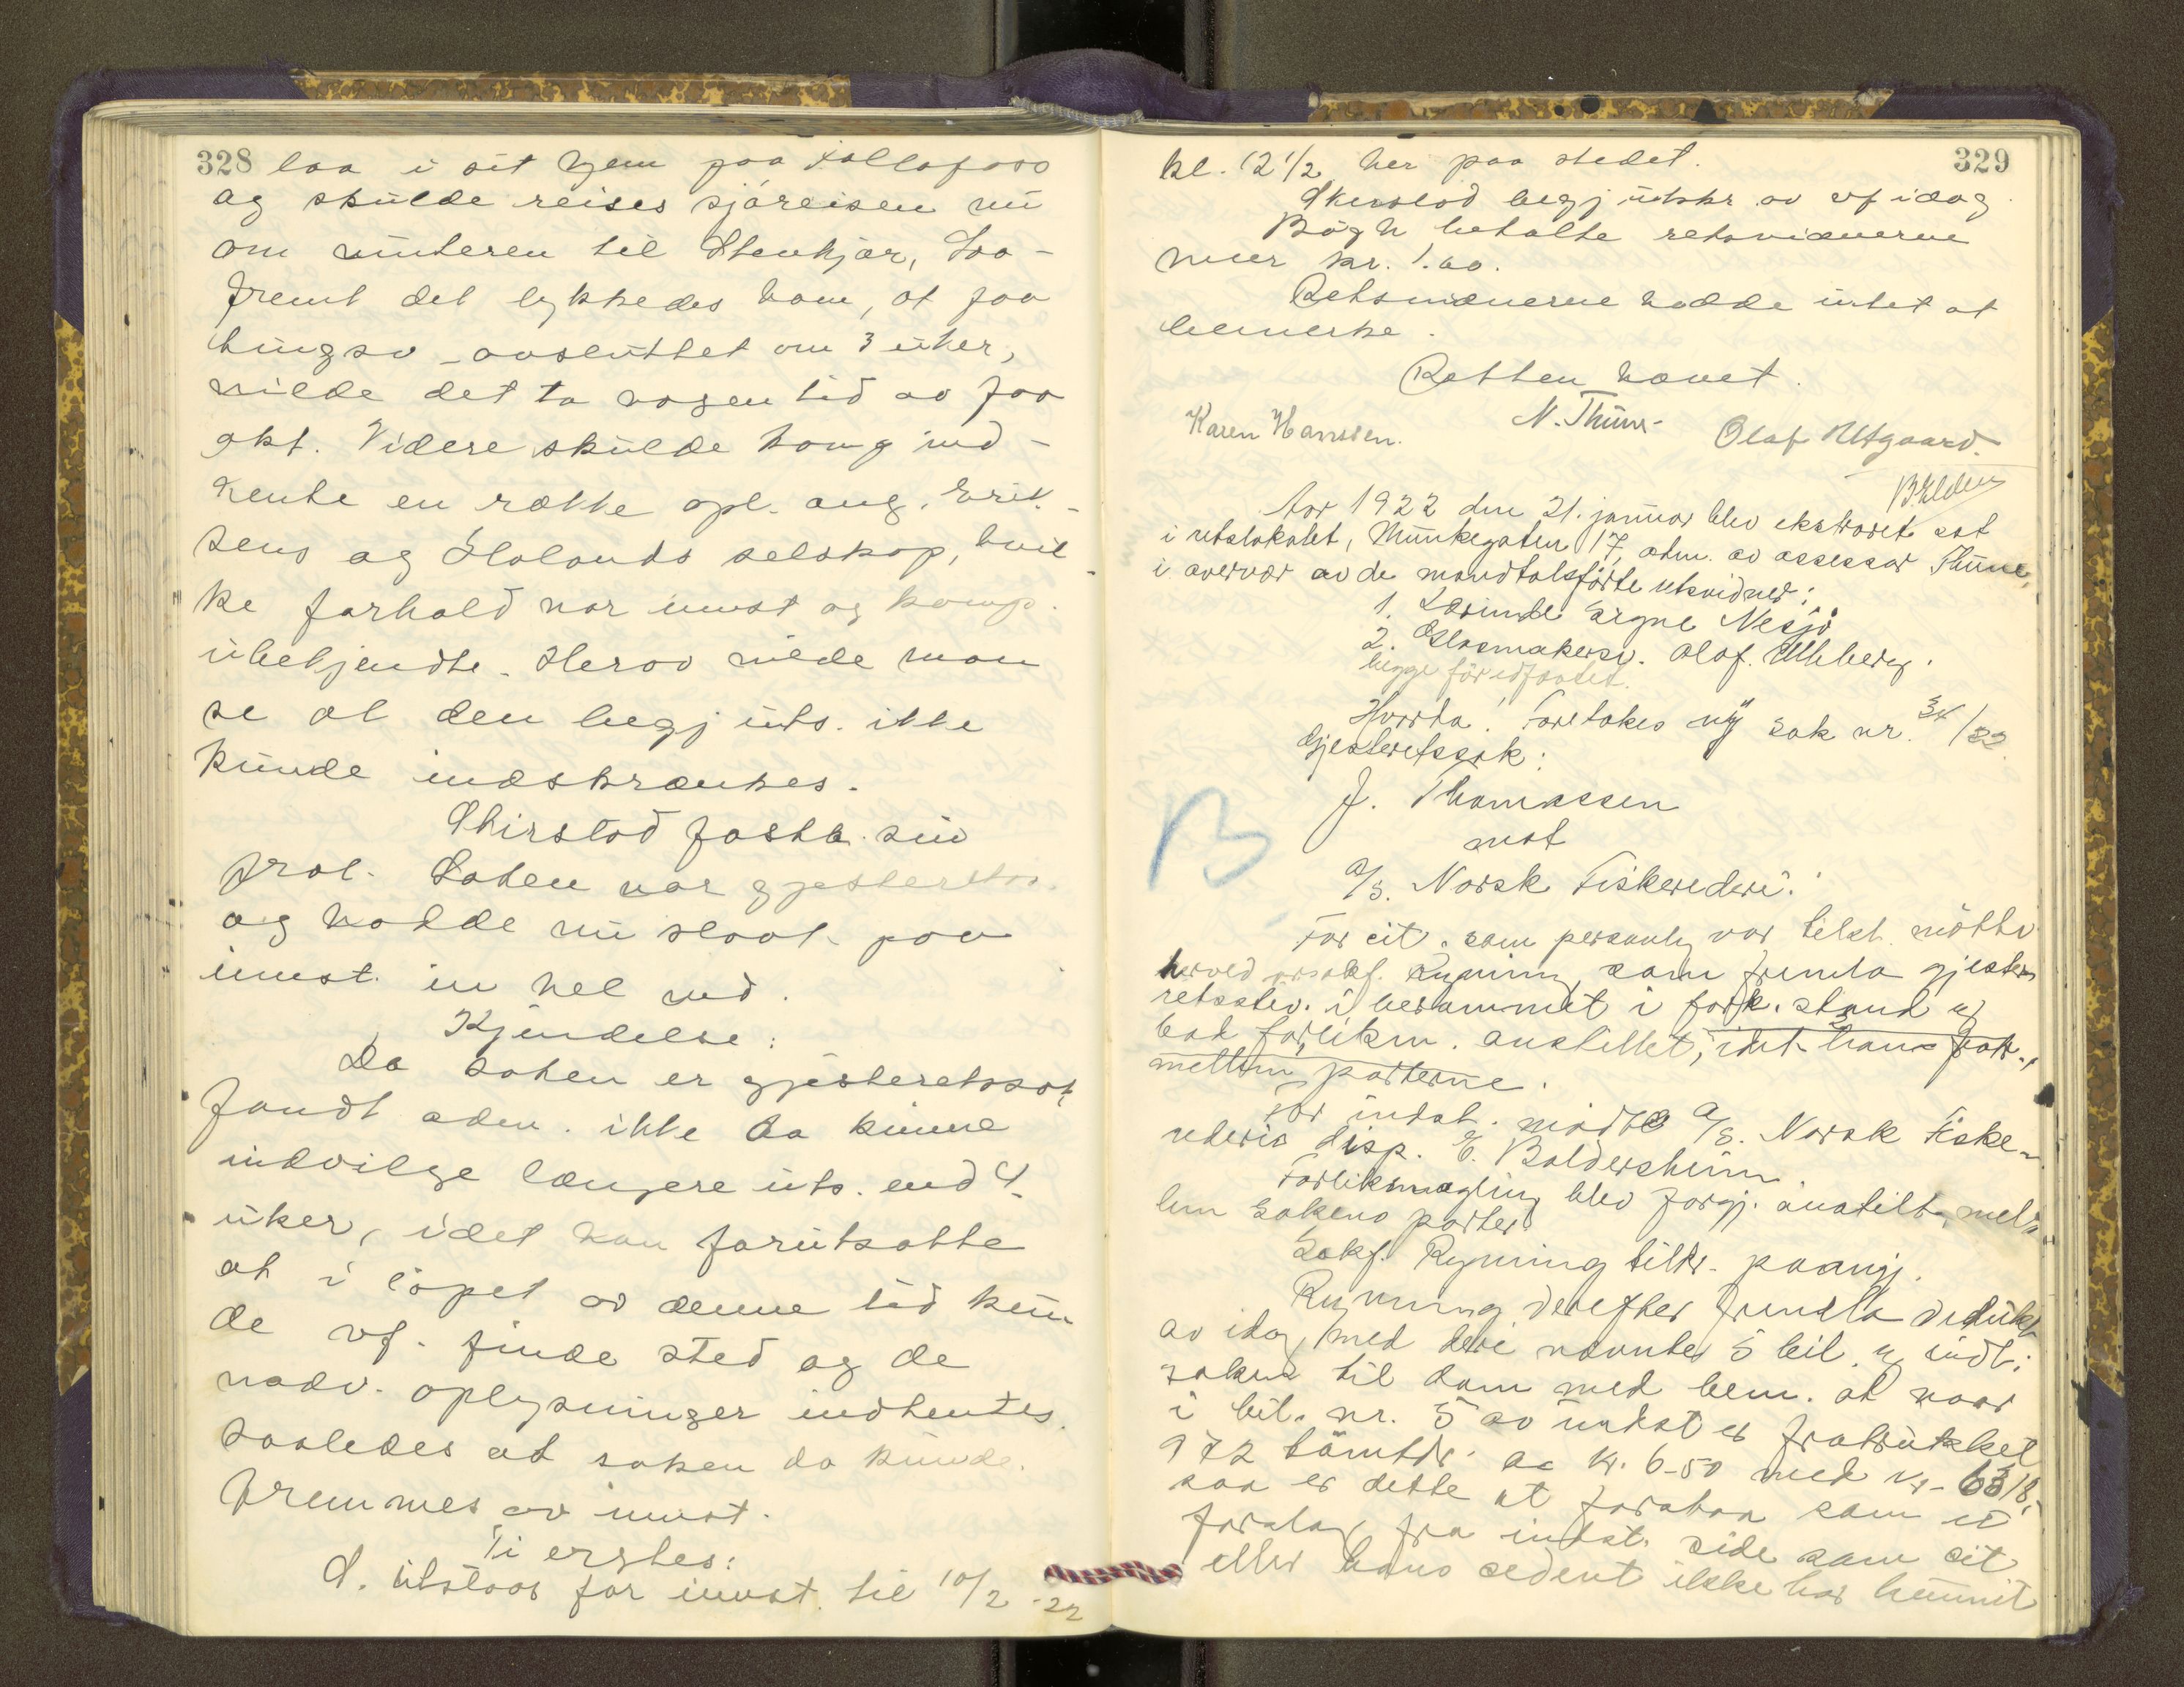 328 laa i sit hjem paa Follafoss
og skulde reises sjøreisen nu
om vinteren til Stenkjær, Saa-
fremt det lykkedes ham, at faa
tingsv avsluttet om 3 uker,
vilde det ta nogen tid av faa
akt. Videre skulde ind-
hente en række opl. ang. Erik-
sens og Holands selskap, hvil-
ke forhold var innst og komp.
ubekjendte. Herav vilde man
se at den begj uts. ikke
kunde indskrænkes.
Skirstad fasth. sin
prot. Saken var gjesterets.
og hadde nu staat paa
innst. in hel ned.
Kjendelse:
Da saken er gjesteretssak
fandt adm. ikke da kunne
indvilge længere uts. end 4
uker, idet han forutsatte
at i løpet av denne tid kun-
de vf. finde sted og de
nødv. oplysninger indhentes
saaledes at saken da kunde
fremmes av innst.
Ti ergtes:
S. utstaar for innst. til 10/2 -22
329
kl. 12 1/2 her paa stedet.
Skirstad begj utskr. av vf idag.
Bøgh betalte retsvidnerne
hver kr. 1.00.
Retsvidnerne hadde intet at
bemerke.
Retten hævet.
Karen Hanssen. N. Thune Olaf Utgaard.
B. Elden
Aar 1922 den 21. januar blev ekstraret sat
i retslokalet, Munkegaten 17, adm. av assessor Thune,
i overvær av de mandtalsførte retsvidner:
1. Lærerinde Nesjø
2. Olaf.
begge før edfæstet.
Hvorda! Foretokes ny sak nr. 34/22
Gjesteretssak:
B
J. Thomassen
mot
A/S. Norsk Fiskerederi.
For cit. som personlig var tilst. møtte
herved orsakf. Ryning som fremla gjeste-
retsstev. i berammet i fork. stand og
bad forlikm. anstillet, idet
mellem parterne.
For indst. mødte A/S. Norsk Fiske-
rederis disp. E. Baldersheim
Forliksmægling blev forgj. anstillt mel-
lem sakens parter
Sakf. Ryning tiltr. paany.
Ryning derefter fremla deduk
av idag med deri nævnte 5 bil. og indt:
saken til dom med bem. at naar
i bil. nr. 5 av indst er fratrukket
972 tømtdr. a kr. 6-50 med kr. 6318,-
saa er dette at forstaa som et
forslag fra indst. side som cit
eller hans cedent ikke har kunnet